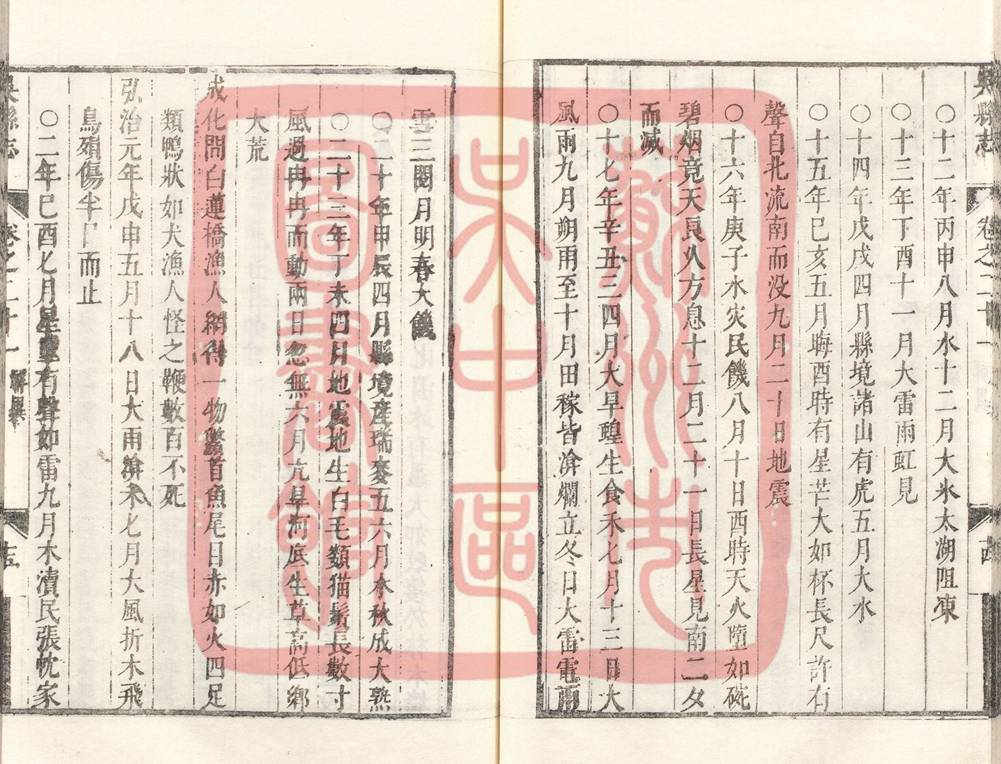 吳縣志 卷之二十一
〇十二年丙申八月水十二月大氷太湖阻凍
〇十三年丁酉十一月大雷雨虹見
〇十四年戊戌四月縣境諸山有虎五月大水
〇十五年己亥五月晦酉時有星芒大如杯長尺許有
聲自北流南而没九月二十日地震
〇十六年庚子水灾民饑八月十日西時天火墮如碗
碧烟竟天良久方息十二月二十一日長星見南二夕
而滅
〇十七年辛丑三四月大旱蝗生食禾七月十三日大
風雨九月朔雨至十月田稼皆渰爛立冬日大雷電雨
雪二閏月明春大饑
〇二十年甲辰四月縣境産瑞麥五六月水秋成大熟
〇二十三年丁未四月地震地生白毛類猫鬚長數寸
風過冉冉而動兩日忽無六月亢旱河底生草高低鄉
大荒
成化間白蓮橋漁人網得一物鱉首魚尾目赤如火四足
類鴨狀如犬漁人怪之鞭數百不死
弘治元年戊申五月十八日大雨渰禾七月大風折木飛
鳥殞傷半日而止
〇二年己酉七月星隕有聲如雷九月木瀆民張忱家
吳縣志 卷之二十一 祥異 十五
蘇州市
吳中區
圖書館